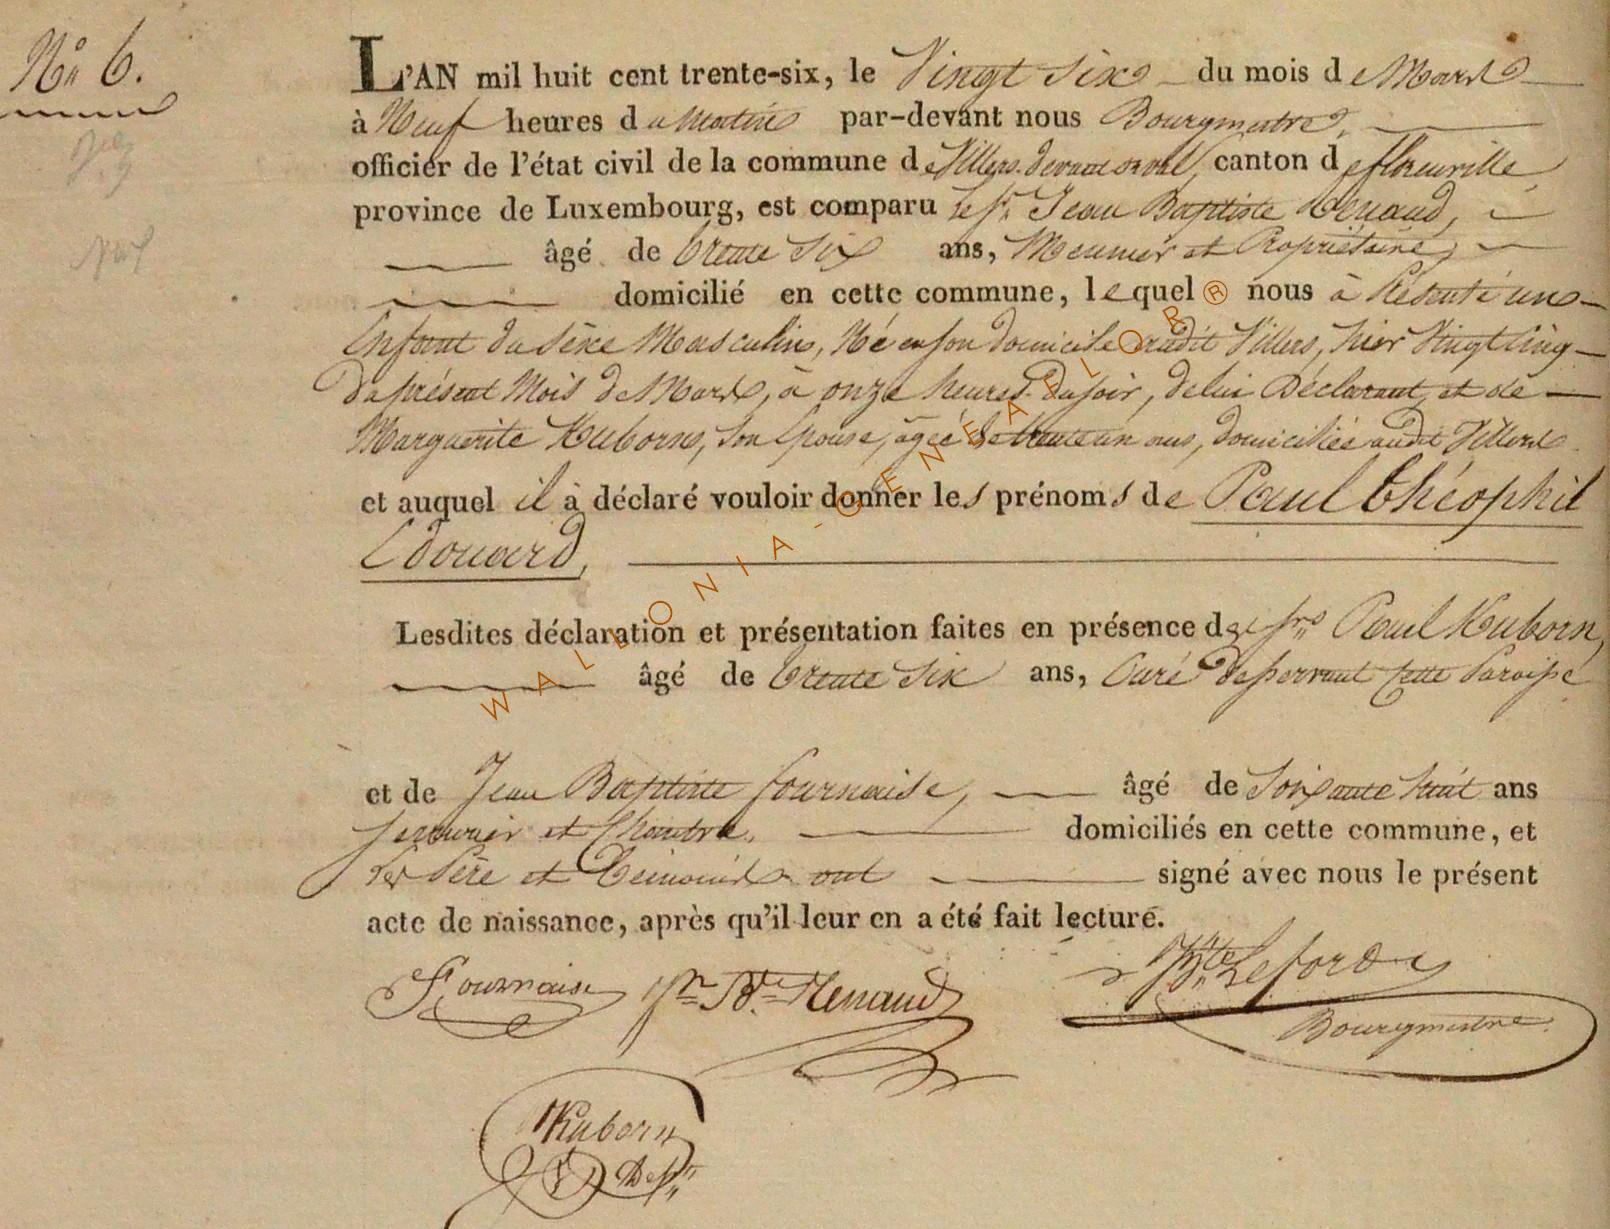 N° 6.
L'AN mil huit cent trente-six, le Vingt Six du mois de Mars
à Neuf heures du Matin par-devant nous Bourgmestre,
officier de l'état civil de la commune de Villers-devant-orval, canton de florenville
province de Luxembourg, est comparu le Sr. Jean Baptiste Renaud,
âgé de trente Six ans, Meunier et Propriétaire,
domicilié en cette commune, lequel nous à Présenté un
Enfant du Sexe Masculin, Né en son domicile audit Villers, hier Vingt Cinq
du présent Mois de Mars, à onze heures du soir, de lui Déclarant et de
Marguerite Kuborn, Son Epouse, agée de trente un ans, domiciliée audit Villers
et auquel il à déclaré vouloir donner les prénoms de Paul Théophil
Edouard,
Lesdites déclaration et présentation faites en présence de Srs Paul Kuborn,
âgé de trente Six ans, Curé desservant cette Paroisse
et de Jean Baptiste fournaise, âgé de Soixante huit ans
serrurier et Chantre, domiciliés en cette commune, et
les Père et Témoins ont signé avec nous le présent
acte de naissance, après qu'il leur en a été fait lecture.
Fournaise Jn. Bte. Renaud Bte Leford
Bourgmestre
Kuborn
Des.
WALLONIA-GENEALOR®